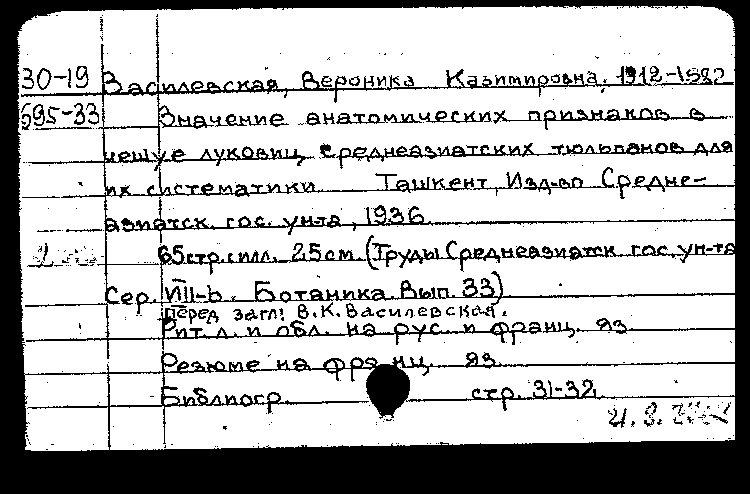 30-19 Василевская, Вероника Казимировна, 1912-1982
595-33 Значение анатомических признаков в
чешуе луковиц среднеазиатских тюльпанов для
их систематики Ташкент, Изд-во Средне-
азиатск. гос. ун-та, 1936
65 стр. с илл. 25 см. (Труды Среднеазиатск гос. ун-та
Сер. VIII-b. Ботаника. Вып. 33)
Перед загл: В.К. Василевская.
Тит. л. и обл. на рус. и франц. яз.
Резюме на франц. яз.
Библиогр. стр. 31-32.